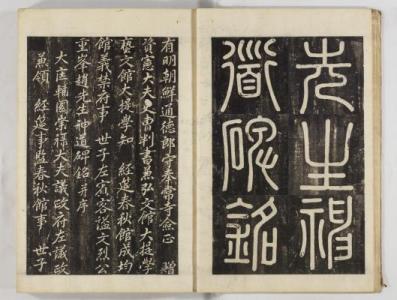 先生神
道碑銘
有明朝鮮通德郎守奉常寺僉正 贈
資憲大夫吏曹判書兼弘文館大提學
藝文館大提學知 經筵春秋館成均
館義禁府事 世子左賓客謚文烈公
重峯趙先生神道碑銘 并序
大匡輔國崇祿大夫議政府左議政
兼領 經筵事監春秋館事 世子